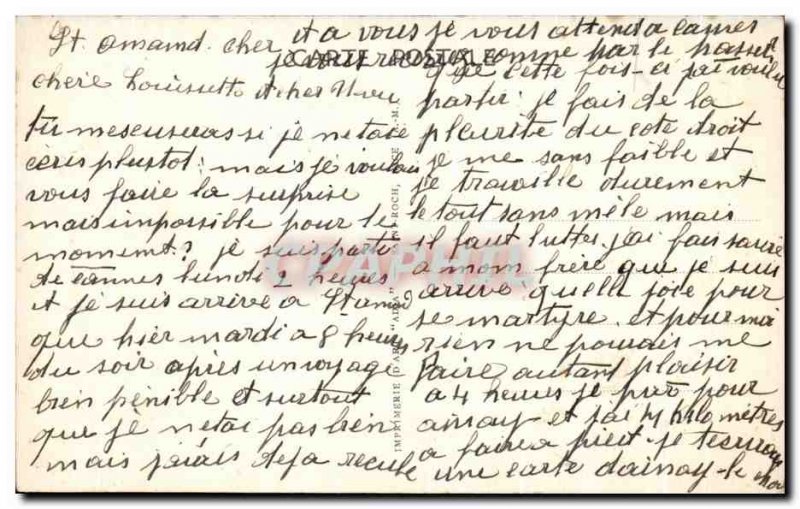 St. amand. cher
chere Louisette et cher
tu mescuseras si je netaie
ceris plustot: mais je voulai
vous faire la surprise
mais impossible pour le
moment? je suis parti
de Cannes lundi 2 heures
et je suis arrive a St amand
que hier mardi a 8 heures
du soir après un voyage
bien pénible et surtout
que je netai pas bien
mais jaiais deja recule
et a vous je vous attend a Cannes
CARTE POSTALE
comme par le passer
que cette fois-ci jai voulu
partir: je fais de la
pleurite du cote droit
je me sans faible et
je travaille durement
le tout sans mêle mais
il faut lutter, jai fais savoir
a mon frère que je suis
arrive quelle joie pour
se martyre. et pour moi
rien ne pouvais me
faire autant plaisir
a 4 heures je pars pour
ainay et jai 4 kilomètres
a faire a pieit. je tecrirais
une carte dainay-le
IMPRIMERIE D'ART "ADIA"
ROCH,
CPAPHIL